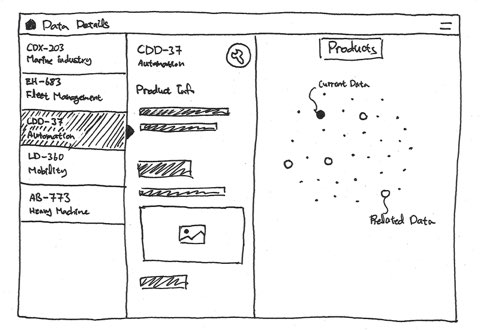 Data Details
CDX-203
Marine Industry
EH-683
Fleet Management
CDD-37
Automation
LD-360
Mobility
AB-773
Heavy Machine
CDD-37
Automation
Product Info
Products
Current Data
Related Data